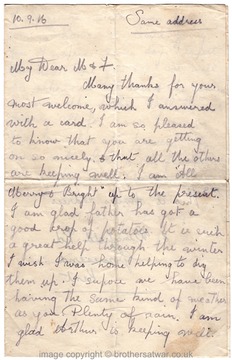 10.9.16
Same address
My Dear M & F.
Many thanks for your
most welcome, which I answered
with a card. I am so pleased
to know that you are getting
on so nicely, & that all the others
are keeping well. I am still
Merry & Bright up to the present.
I am glad father has got a
good crop of potatoes. It is such
a great help through the winter
I wish I was home helping to dig
them up. I supose we have been
having the same kind of weather
as you Plenty of rain. I am
glad Arthur is keeping well.
image copyright © brothersatwar.co.uk